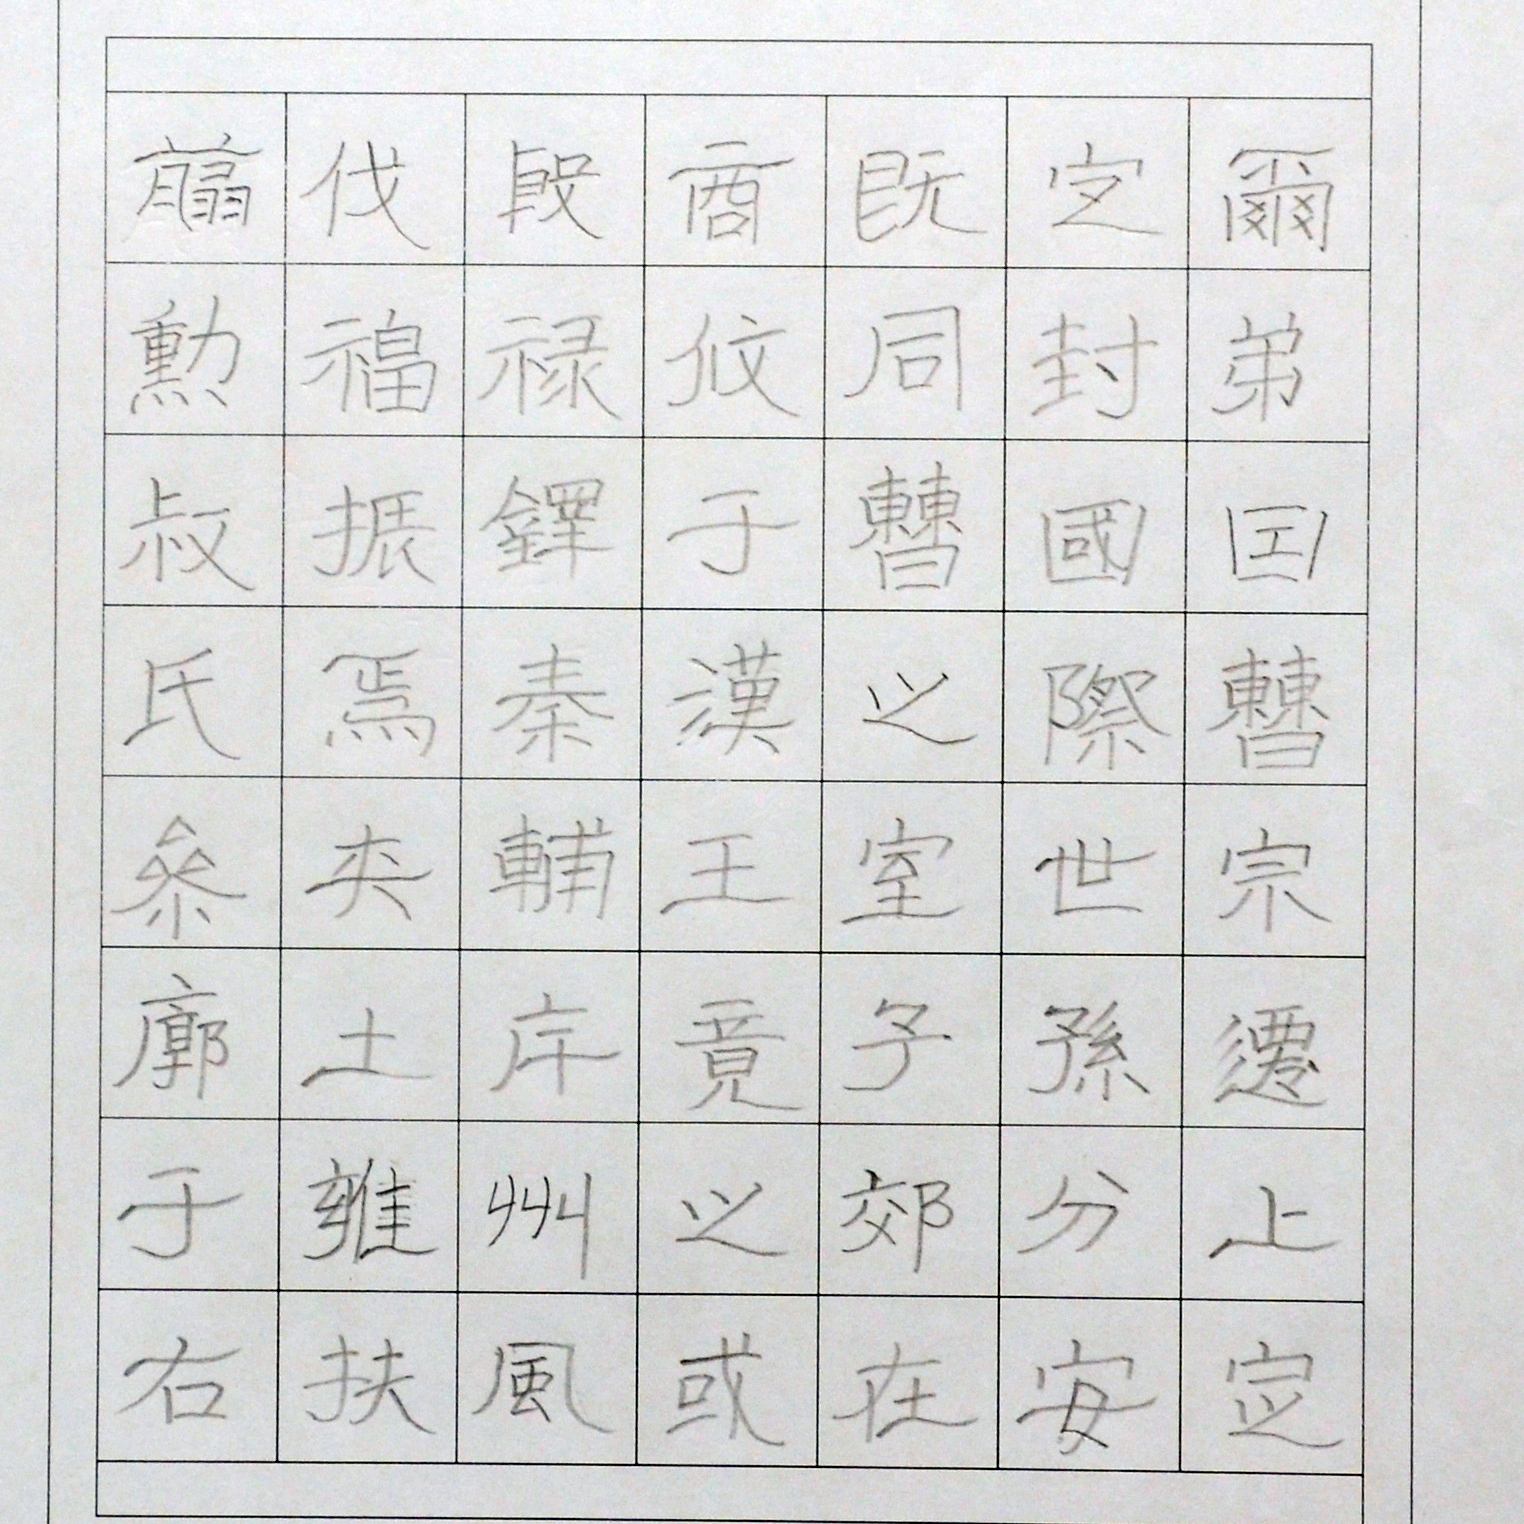 翦伐殷商既定爾
勳福禄攸同封弟
叔振鐸于曹國因
氏焉秦漢之際曹
參夾輔王室世宗
廓土斥竟子孫遷
于雍州之郊分止
右扶風或在安定